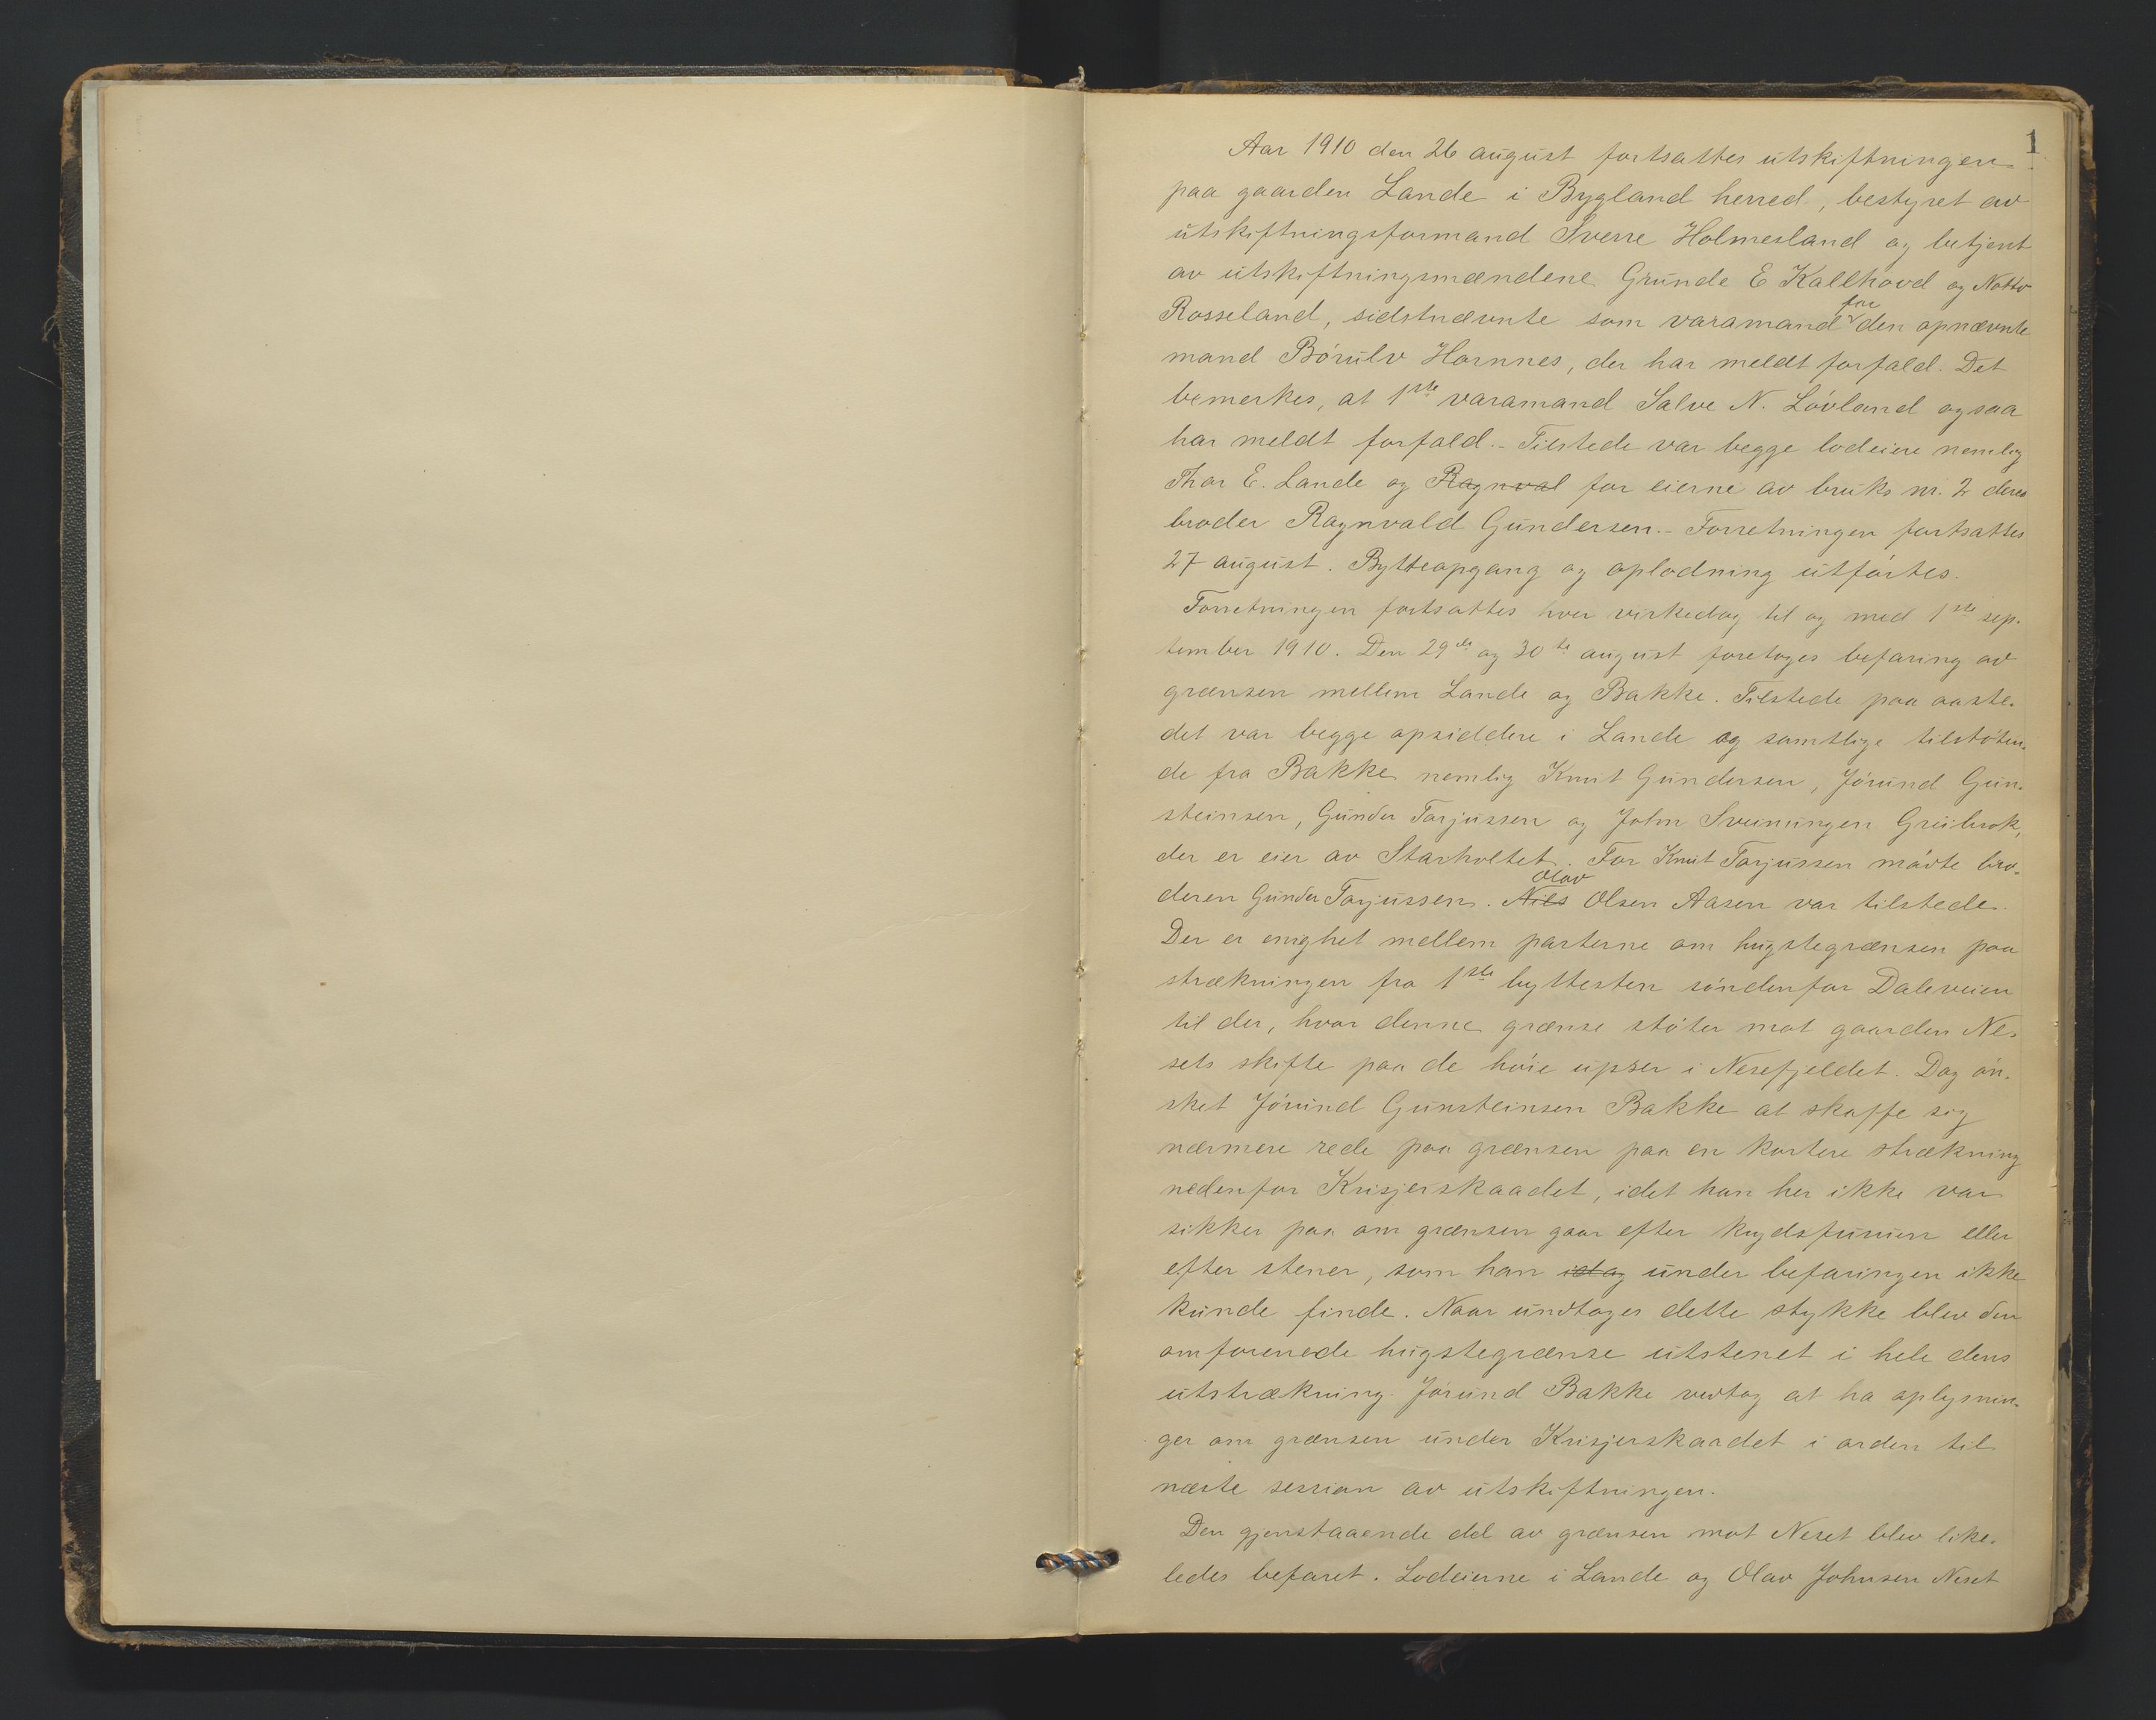 1
Aar 1910 den 26 august fortsattes utskiftningen
paa gaarden Lande i Bygland herred, bestyret av
utskiftningsformand Sverre Holmesland og betjent
av utskiftningsmændene Grunde E Kallhovd og Notto
Rosseland, sidstnævnte som varamand for den opnævnte
mand Børulv Hornnes, der har meldt forfald. Det
bemerkes, at 1ste varamand Salve N. Løvland ogsaa
har meldt forfald. - Tilstede var begge lodeiere nemlig
Thor E. Lande og Ragnval for eierne av bruks nr. 2 deres
broder Ragnvald Gundersen. - Forretningen fortsattes
27 august. Bytteopgang og oplodning utførtes.
Forretningen fortsattes hver virkedag til og med 1ste sep-
tember 1910. Den 29de og 30te august foretoges befaring av
grænsen mellem Lande og Bakke. Tilstede paa aaste-
det var begge opsiddere i Lande og samtlige tilstøten-
de fra Bakke nemlig Knut Gundersen, Jørund Gun-
steinsen, Gunder Tarjussen og John Sveinungen
der er eier av Starholtet. For Knut Tarjussen møvte bro-
deren Gunder Tarjussen. Nils Olav Olsen Aasen var tilstede.
Der er enighet mellem parterne om hugstegrænsen paa
strækningen fra 1ste byttesten søndenfor Daleveien
til der, hvor denne grænse støter mot gaarden Ne-
sets skifte paa de høie upser i Nesefjeldet. Dog øn-
sket Jørund Gunsteinsen Bakke at skaffe sig
nærmere rede paa grænsen paa en kortere strækning
nedenfor Krisjerskaadet, idet han her ikke var
sikker paa om grænsen gaar efter krydsfuruer eller
efter stener, som han idag under befaringen ikke
kunde finde. Naar undtages dette stykke blev den
omforenede hugstegrænse utstenet i hele dens
utstrækning. Jørund Bakke vedtog at ha oplysnin-
ger om grænsen under Krisjerskaadet i orden til
næste session av utskiftningen.
Den gjenstaaende del av grænsen mot Neset blev like-
ledes befaret. Lodeierne i Lande og Olav Johnsen Neset